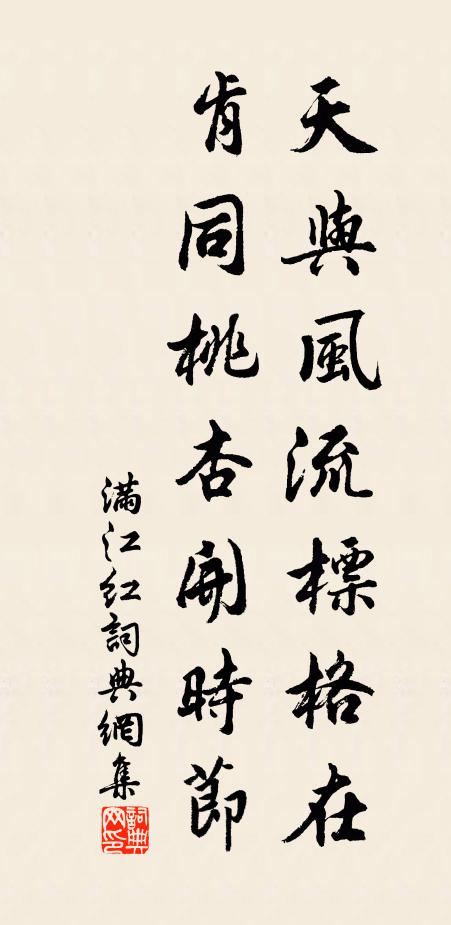 天與風流標格在
肯同桃杏開時節
滿江紅詞典網集
詞典網印